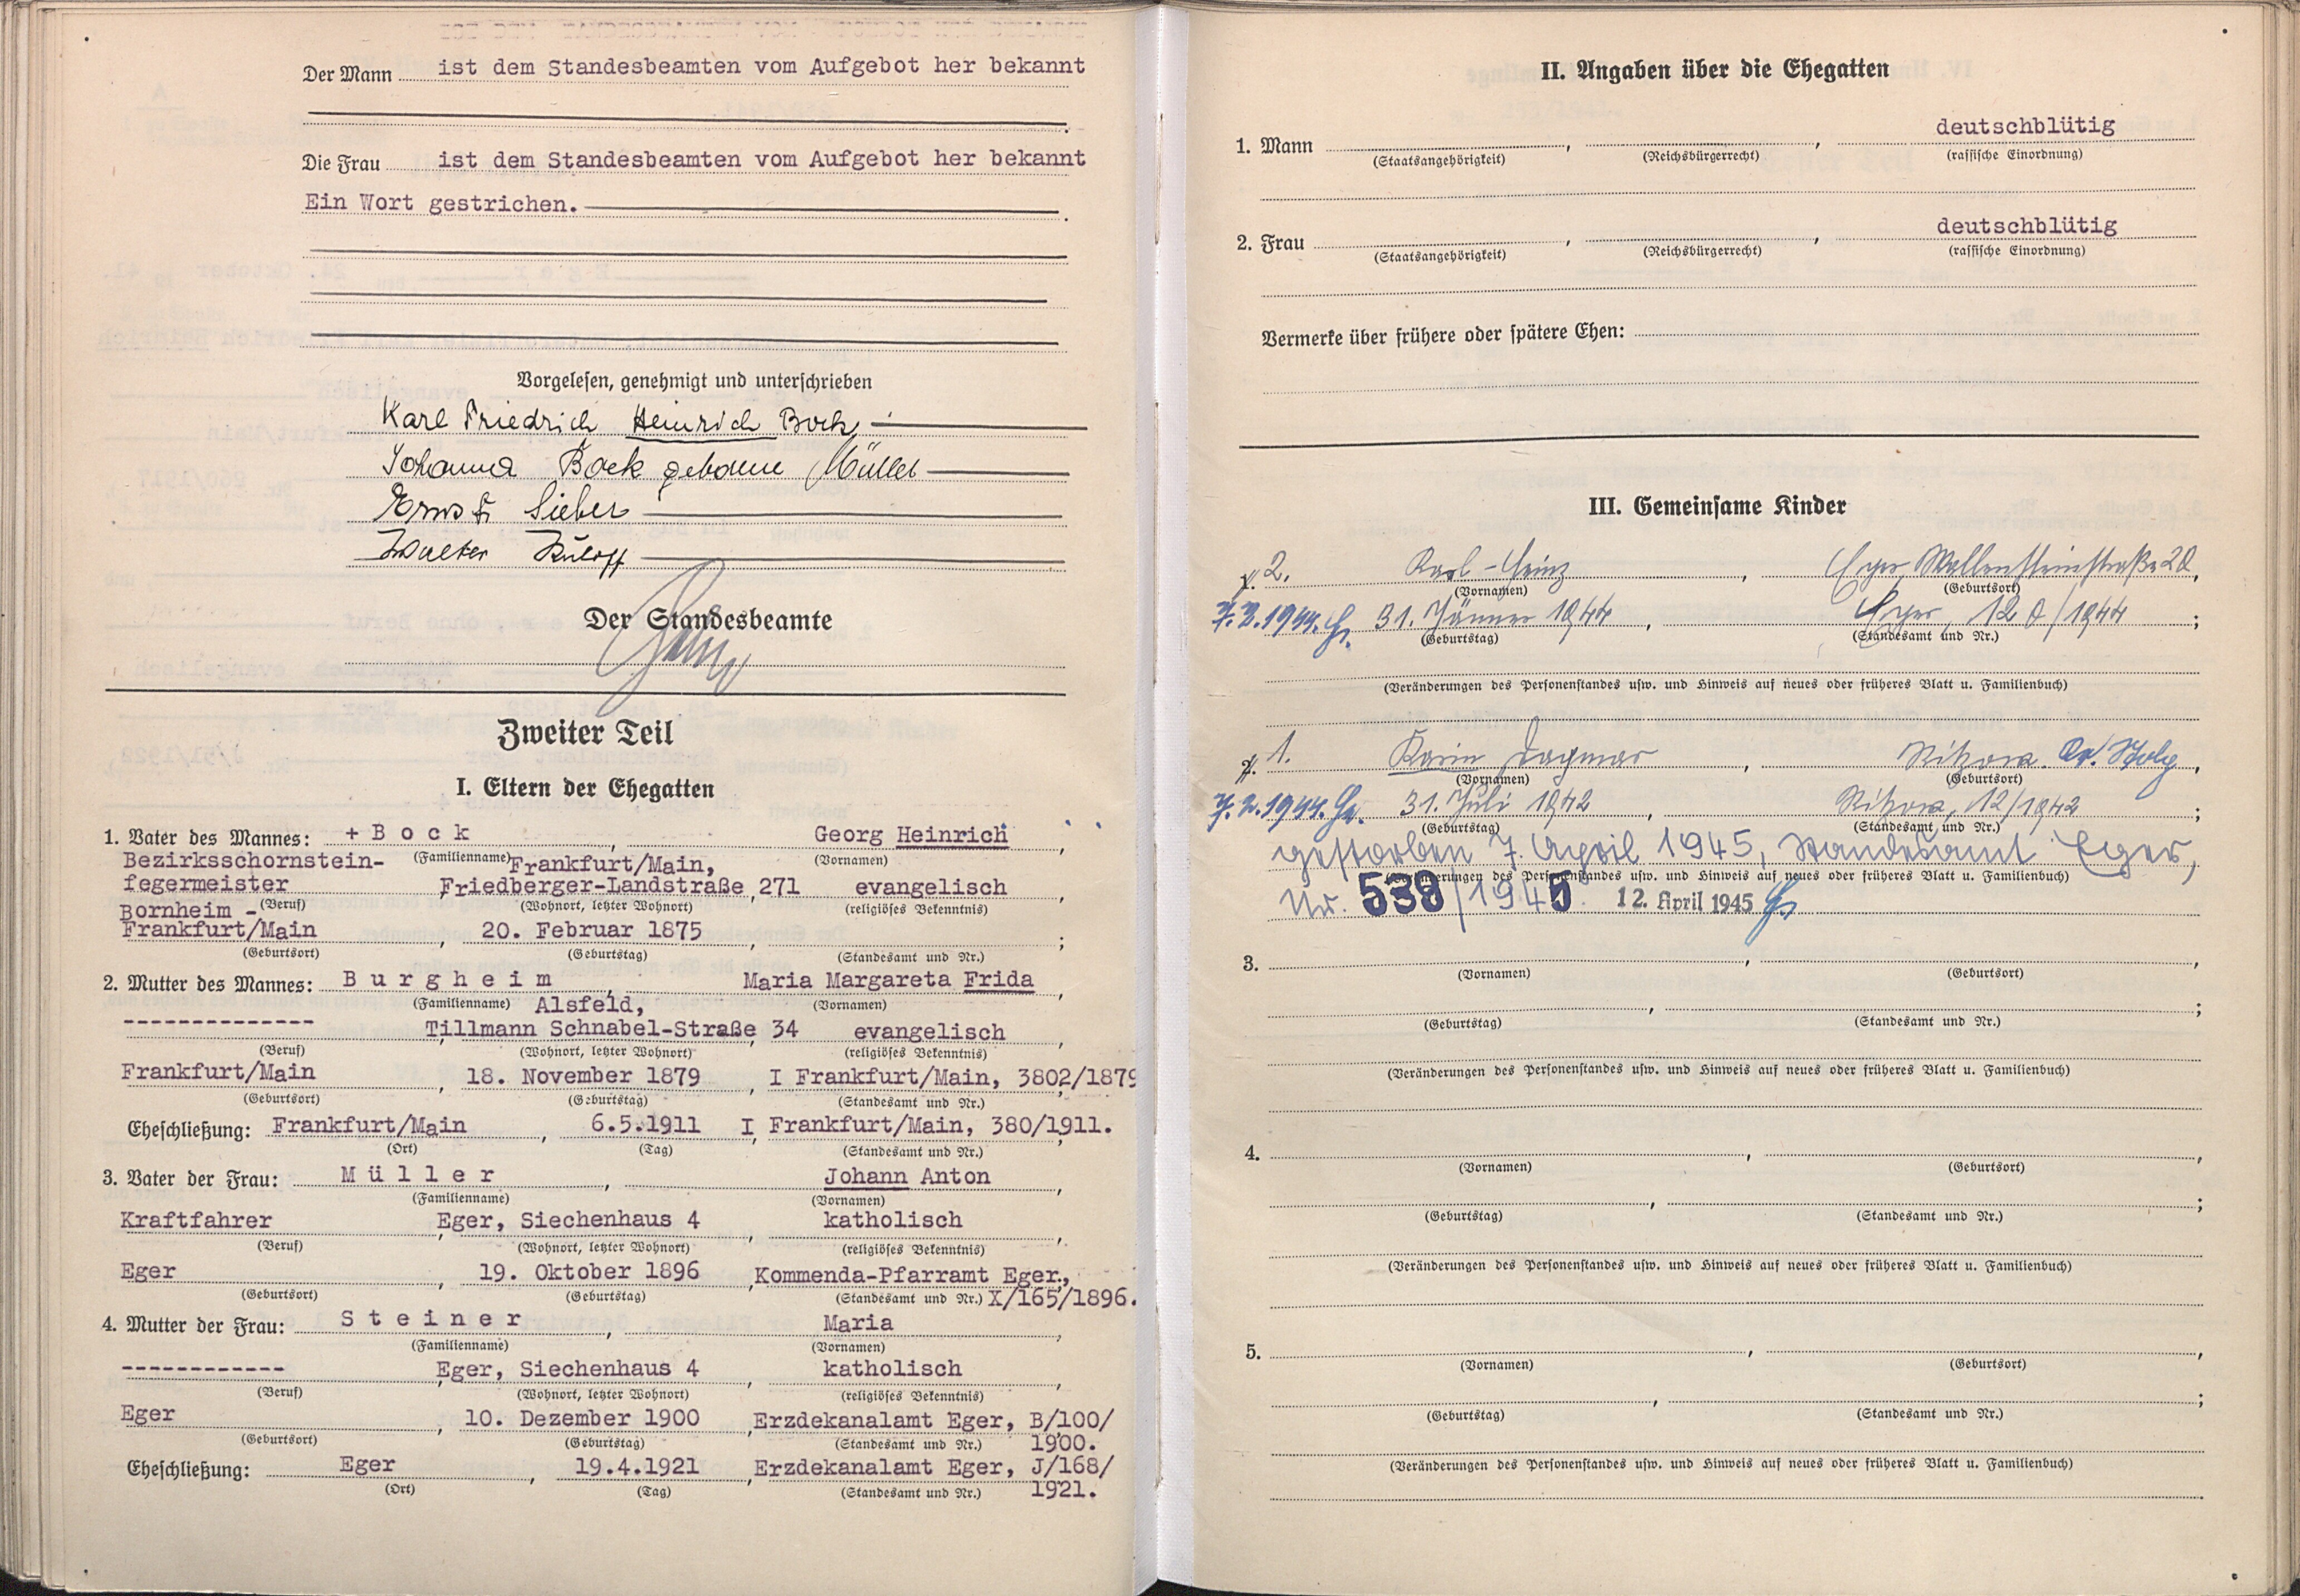 Der Mann ist dem Standesbeamten vom Aufgebot her bekannt
Die Frau ist dem Standesbeamten vom Aufgebot her bekannt
Ein Wort gestrichen.
Vorgelesen, genehmigt und unterschrieben
Karl Friedrich Heinrich Bock
Johanna Bock geborene Müller
Ernst Sieber
Walter
Der Standesbeamte
Zweiter Teil
I. Eltern der Ehegatten
1. Vater des Mannes: + Bock, Georg Heinrich,
(Familienname) (Vornamen)
Bezirksschornstein- Frankfurt/Main,
fegermeister Friedberger-Landstraße 271, evangelisch,
(Beruf) (Wohnort, letzter Wohnort) (religiöses Bekenntnis)
Bornheim -
Frankfurt/Main, 20. Februar 1875, ;
(Geburtsort) (Geburtstag) (Standesamt und Nr.)
2. Mutter des Mannes: Burgheim, Maria Margareta Frida,
(Familienname) (Vornamen)
Alsfeld,
-------------- Tillmann Schnabel-Straße 34, evangelisch,
(Beruf) (Wohnort, letzter Wohnort) (religiöses Bekenntnis)
Frankfurt/Main, 18. November 1879, I Frankfurt/Main, 3802/1879
(Geburtsort) (Geburtstag) (Standesamt und Nr.)
Eheschließung: Frankfurt/Main, 6.5.1911 I, Frankfurt/Main, 380/1911.;
(Ort) (Tag) (Standesamt und Nr.)
3. Vater der Frau: Müller, Johann Anton,
(Familienname) (Vornamen)
Kraftfahrer, Eger, Siechenhaus 4, katholisch,
(Beruf) (Wohnort, letzter Wohnort) (religiöses Bekenntnis)
Eger, 19. Oktober 1896, Kommenda-Pfarramt Eger,;
(Geburtsort) (Geburtstag) (Standesamt und Nr.) X/165/1896.
4. Mutter der Frau: Steiner, Maria,
(Familienname) (Vornamen)
------------, Eger, Siechenhaus 4, katholisch,
(Beruf) (Wohnort, letzter Wohnort) (religiöses Bekenntnis)
Eger, 10. Dezember 1900, Erzdekanalamt Eger, B/100/
(Geburtsort) (Geburtstag) (Standesamt und Nr.) 1900.
Eheschließung: Eger, 19.4.1921, Erzdekanalamt Eger, J/168/
(Ort) (Tag) (Standesamt und Nr.) 1921.
II. Angaben über die Ehegatten
1. Mann , , deutschblütig
(Staatsangehörigkeit) (Reichsbürgerrecht) (rassische Einordnung)
2. Frau , , deutschblütig
(Staatsangehörigkeit) (Reichsbürgerrecht) (rassische Einordnung)
Vermerke über frühere oder spätere Ehen:
III. Gemeinsame Kinder
1. 2. Karl-Heinz, Eger, Wallensteinstraße 20,
(Vornamen) (Geburtsort)
7.2.1944. 31. Jänner 1944, Eger, 120/1944;
(Geburtstag) (Standesamt und Nr.)
(Veränderungen des Personenstandes usw. und Hinweis auf neues oder früheres Blatt u. Familienbuch)
2. 1. Karin Dagmar, Ritzow. Kr. Stolp,
(Vornamen) (Geburtsort)
7.2.1944. 31. Juli 1942, Ritzow, 12/1942;
(Geburtstag) (Standesamt und Nr.)
gestorben 7. April 1945, Standesamt Eger,
(Veränderungen des Personenstandes usw. und Hinweis auf neues oder früheres Blatt u. Familienbuch)
Nr. 538/1945. 12. April 1945
3. , ,
(Vornamen) (Geburtsort)
, ;
(Geburtstag) (Standesamt und Nr.)
(Veränderungen des Personenstandes usw. und Hinweis auf neues oder früheres Blatt u. Familienbuch)
4. , ,
(Vornamen) (Geburtsort)
, ;
(Geburtstag) (Standesamt und Nr.)
(Veränderungen des Personenstandes usw. und Hinweis auf neues oder früheres Blatt u. Familienbuch)
5. , ,
(Vornamen) (Geburtsort)
, ;
(Geburtstag) (Standesamt und Nr.)
(Veränderungen des Personenstandes usw. und Hinweis auf neues oder früheres Blatt u. Familienbuch)